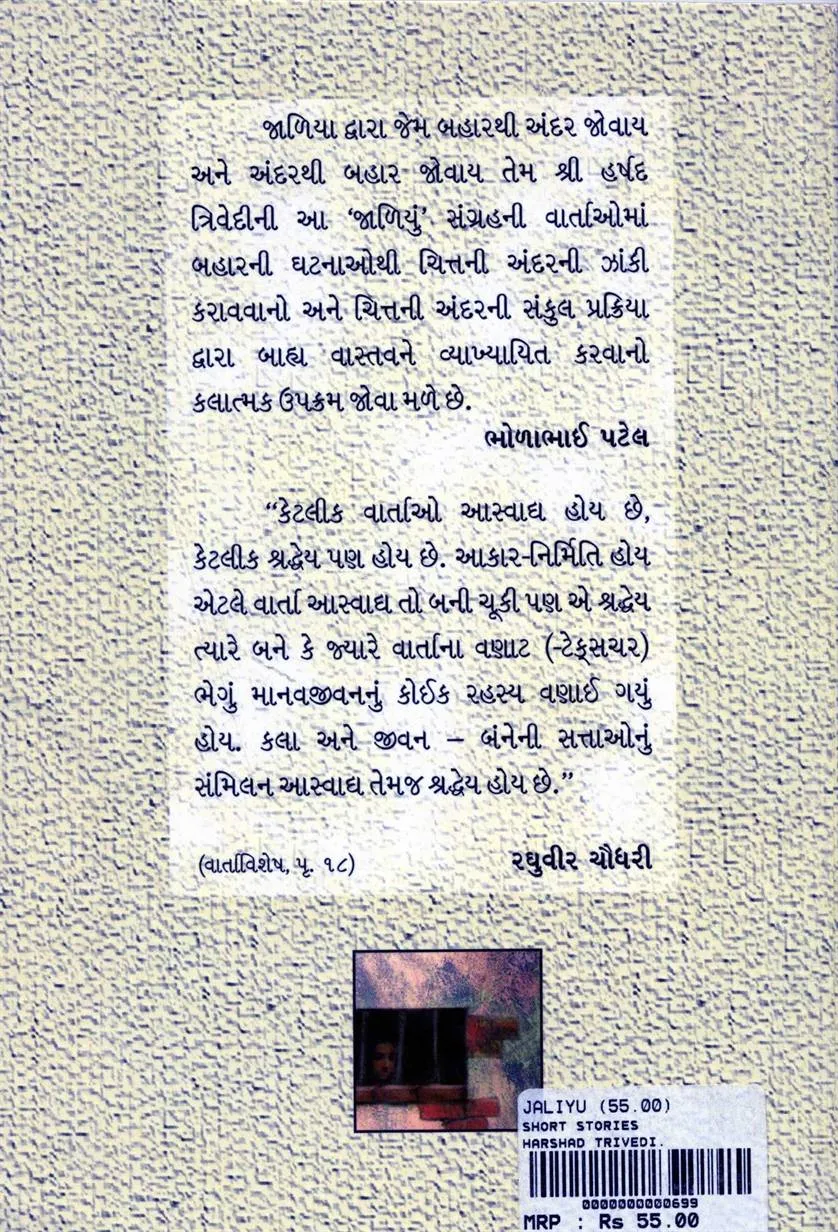 જાળિયા દ્વારા જેમ બહારથી અંદર જોવાય
અને અંદરથી બહાર જોવાય તેમ શ્રી હર્ષદ
ત્રિવેદીની આ ‘જાળિયું’ સંગ્રહની વાર્તાઓમાં
બહારની ઘટનાઓથી ચિત્તની અંદરની ઝાંકી
કરાવવાનો અને ચિત્તની અંદરની સંકુલ પ્રક્રિયા
દ્વારા બાહ્ય વાસ્તવને વ્યાખ્યાયિત કરવાનો
કલાત્મક ઉપક્રમ જોવા મળે છે.
ભોળાભાઈ પટેલ
“કેટલીક વાર્તાઓ આસ્વાદ્ય હોય છે,
કેટલીક શ્રદ્ધેય પણ હોય છે. આકાર-નિર્મિતિ હોય
એટલે વાર્તા આસ્વાદ્ય તો બની ચૂકી પણ એ શ્રદ્ધેય
ત્યારે બને કે જ્યારે વાર્તાના વણાટ (-ટેક્સચર)
ભેગું માનવજીવનનું કોઈક રહસ્ય વણાઈ ગયું
હોય. કલા અને જીવન – બંનેની સત્તાઓનું
સંમિલન આસ્વાદ્ય તેમજ શ્રદ્ધેય હોય છે.”
(વાર્તાવિશેષ, પૃ. ૧૮) રઘુવીર ચૌધરી
JALIYU (55.00)
SHORT STORIES
HARSHAD TRIVEDI.
0000000000699
MRP : Rs 55.00